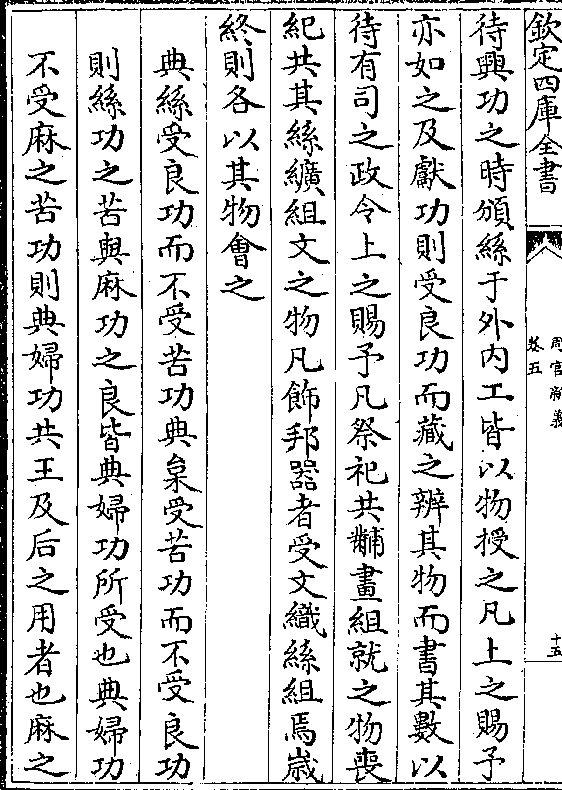 欽定四庫全書
周官新義
卷五
十五
待興功之時頒絲于外内工皆以物授之凡上之賜予
亦如之及獻功則受良功而藏之辨其物而書其數以
待有司之政令上之賜予凡祭祀共黼畫組就之物喪
紀共其絲纊組文之物凡飾邦器者受文織絲組焉歳
終則各以其物會之
典絲受良功而不受苦功典枲受苦功而不受良功
則絲功之苦與麻功之良皆典婦功所受也典婦功
不受麻之苦功則典婦功共王及后之用者也麻之